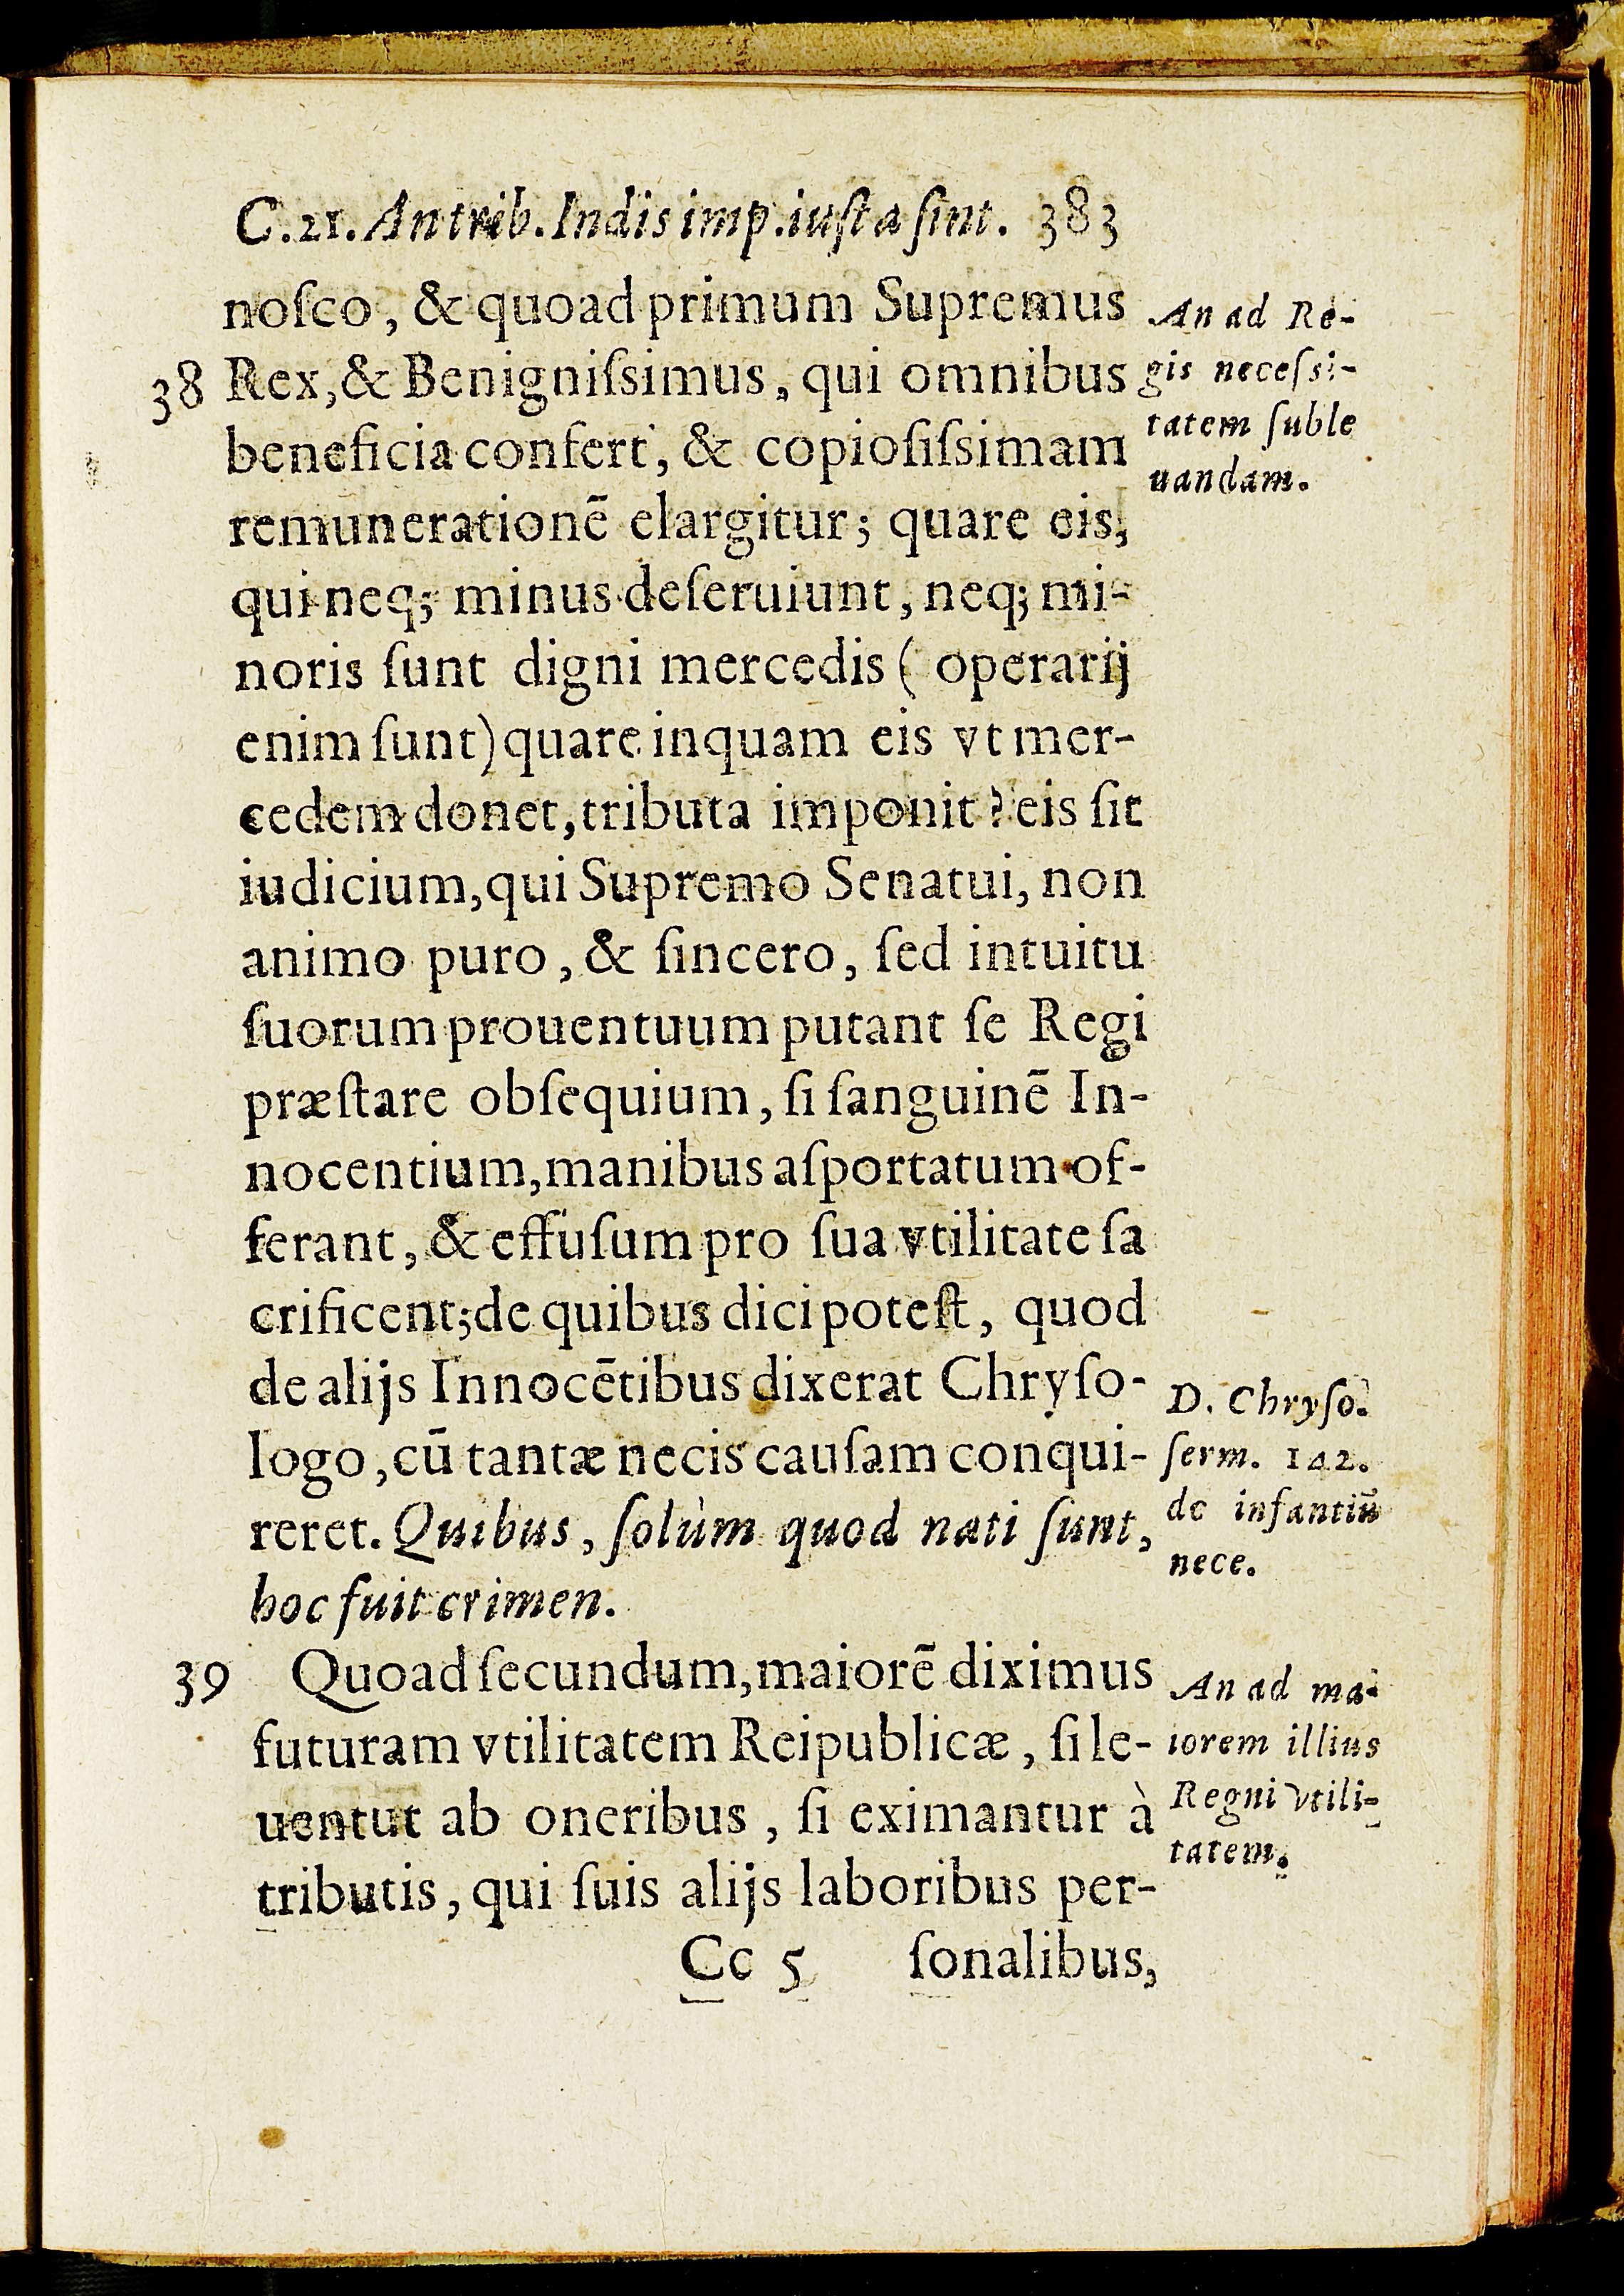 C.21. An trib. Indis imp. iusta sint. 383
noſco, & quoad primum Supremus
38 Rex, & Benigniſsimus, qui omnibus
beneficia confert, & copioſiſsimam
remunerationē elargitur; quare eis,
qui neq; minus deſeruiunt, neq; mi-
noris ſunt digni mercedis ( operarij
enim ſunt) quare inquam eis vt mer-
cedem donet, tributa imponit? eis ſit
iudicium, qui Supremo Senatui, non
animo puro, & ſincero, ſed intuitu
ſuorum prouentuum putant ſe Regi
præſtare obſequium, ſi ſanguinē In-
nocentium, manibus aſportatum of-
ferant, & effuſum pro ſua vtilitate ſa
crificent; de quibus dici poteſt, quod
de alijs Innocētibus dixerat Chryſo-
logo, cū tantæ necis cauſam conqui-
reret. Quibus, ſolùm quod nati ſunt,
hoc fuit crimen.
39 Quoad ſecundum, maiorē diximus
futuram vtilitatem Reipublicæ, ſi le-
uentur ab oneribus, ſi eximantur à
tributis, qui ſuis alijs laboribus per-
Cc 5 ſonalibus,
An ad Re-
gis neceſsi-
tatem ſuble
uandam.
D. Chryſo.
ſerm. 142.
de infantiū
nece.
An ad ma-
iorem illius
Regni vtili-
tatem.